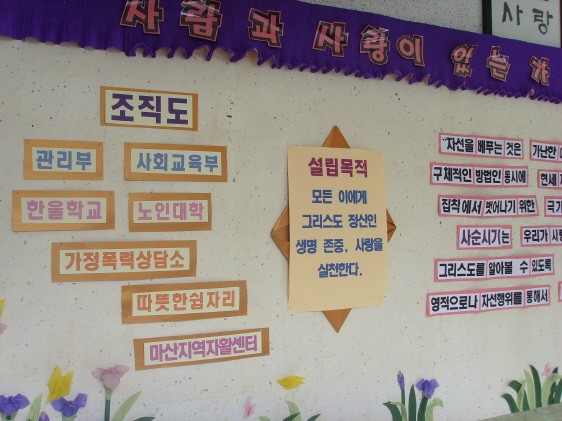 사랑
사람과 사랑이 있는
조직도
관리부 사회교육부
한울학교 노인대학
가정폭력상담소
따뜻한쉼자리
마산지역자활센터
설립목적
모든 이에게
그리스도 정신인
생명 존중, 사랑을
실천한다.
"자선을 베푸는 것은 가난한
구체적인 방법인 동시에 현세
집착에서 벗어나기 위한
사순시기는 우리가
그리스도를 알아볼 수 있도록
영적으로나 자선행위를 통해서